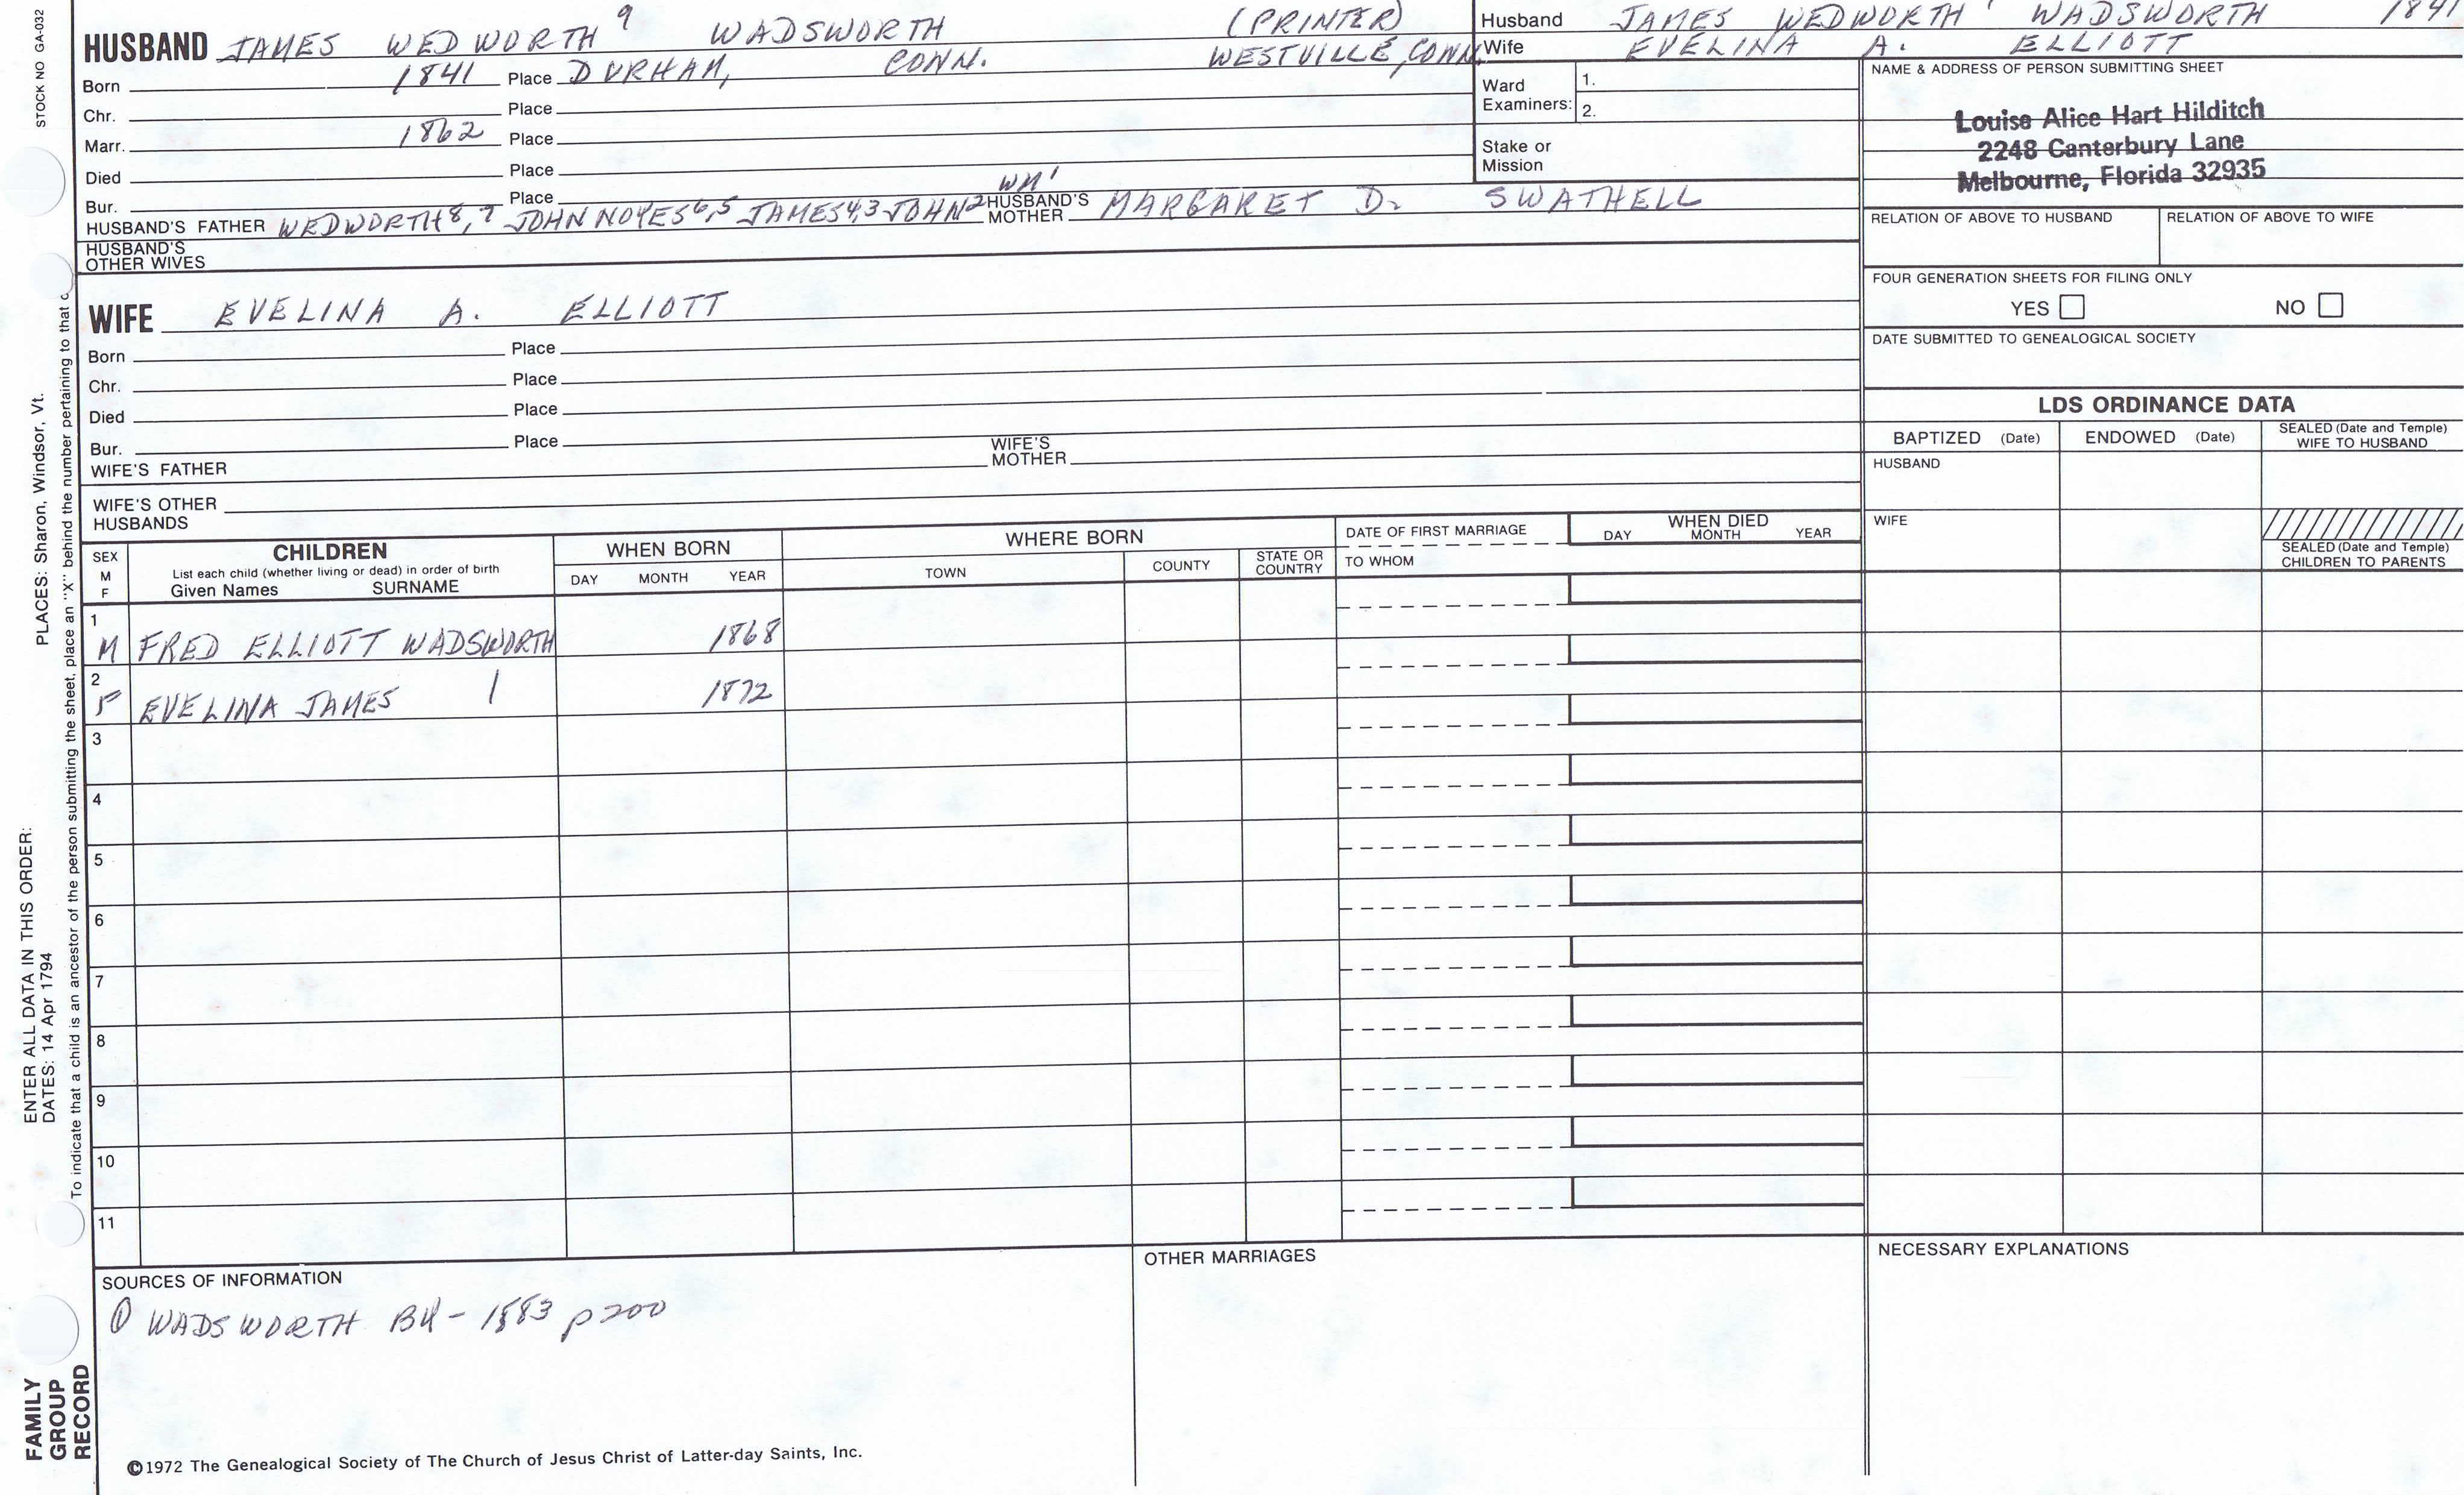 STOCK NO GA-032
HUSBAND JAMES WEDWORTH 9 WADSWORTH (PRINTER)
Born 1841 Place DURHAM, CONN. WESTVILLE, CONN.
Chr. Place
Marr. 1862 Place
Died Place
Bur. Place WM 1
HUSBAND'S FATHER WEDWORTH 8,7 JOHN NOYES 6,5 JAMES 4,3 JOHN 2 HUSBAND'S MOTHER MARGARET D. SWATHELL
HUSBAND'S OTHER WIVES
Husband JAMES WEDWORTH 9 WADSWORTH 1841
Wife EVELINA A. ELLIOTT
Ward Examiners: 1.
2.
Stake or Mission
NAME & ADDRESS OF PERSON SUBMITTING SHEET
Louise Alice Hart Hilditch
2248 Canterbury Lane
Melbourne, Florida 32935
RELATION OF ABOVE TO HUSBAND RELATION OF ABOVE TO WIFE
FOUR GENERATION SHEETS FOR FILING ONLY
YES NO
DATE SUBMITTED TO GENEALOGICAL SOCIETY
WIFE EVELINA A. ELLIOTT
Born Place
Chr. Place
Died Place
Bur. Place
WIFE'S FATHER WIFE'S MOTHER
WIFE'S OTHER HUSBANDS
LDS ORDINANCE DATA
BAPTIZED (Date) ENDOWED (Date) SEALED (Date and Temple) WIFE TO HUSBAND
HUSBAND
WIFE
SEALED (Date and Temple) CHILDREN TO PARENTS
SEX M F
CHILDREN
List each child (whether living or dead) in order of birth
Given Names SURNAME
WHEN BORN
DAY MONTH YEAR
WHERE BORN
TOWN COUNTY STATE OR COUNTRY
DATE OF FIRST MARRIAGE
TO WHOM
WHEN DIED
DAY MONTH YEAR
1 M FRED ELLIOTT WADSWORTH 1868
2 F EVELINA JAMES | 1872
3
4
5
6
7
8
9
10
11
SOURCES OF INFORMATION
① WADSWORTH BK - 1883 p200
OTHER MARRIAGES
NECESSARY EXPLANATIONS
©1972 The Genealogical Society of The Church of Jesus Christ of Latter-day Saints, Inc.
FAMILY
GROUP
RECORD
ENTER ALL DATA IN THIS ORDER:
DATES: 14 Apr 1794
PLACES: Sharon, Windsor, Vt.
To indicate that a child is an ancestor of the person submitting the sheet, place an "X" behind the number pertaining to that c